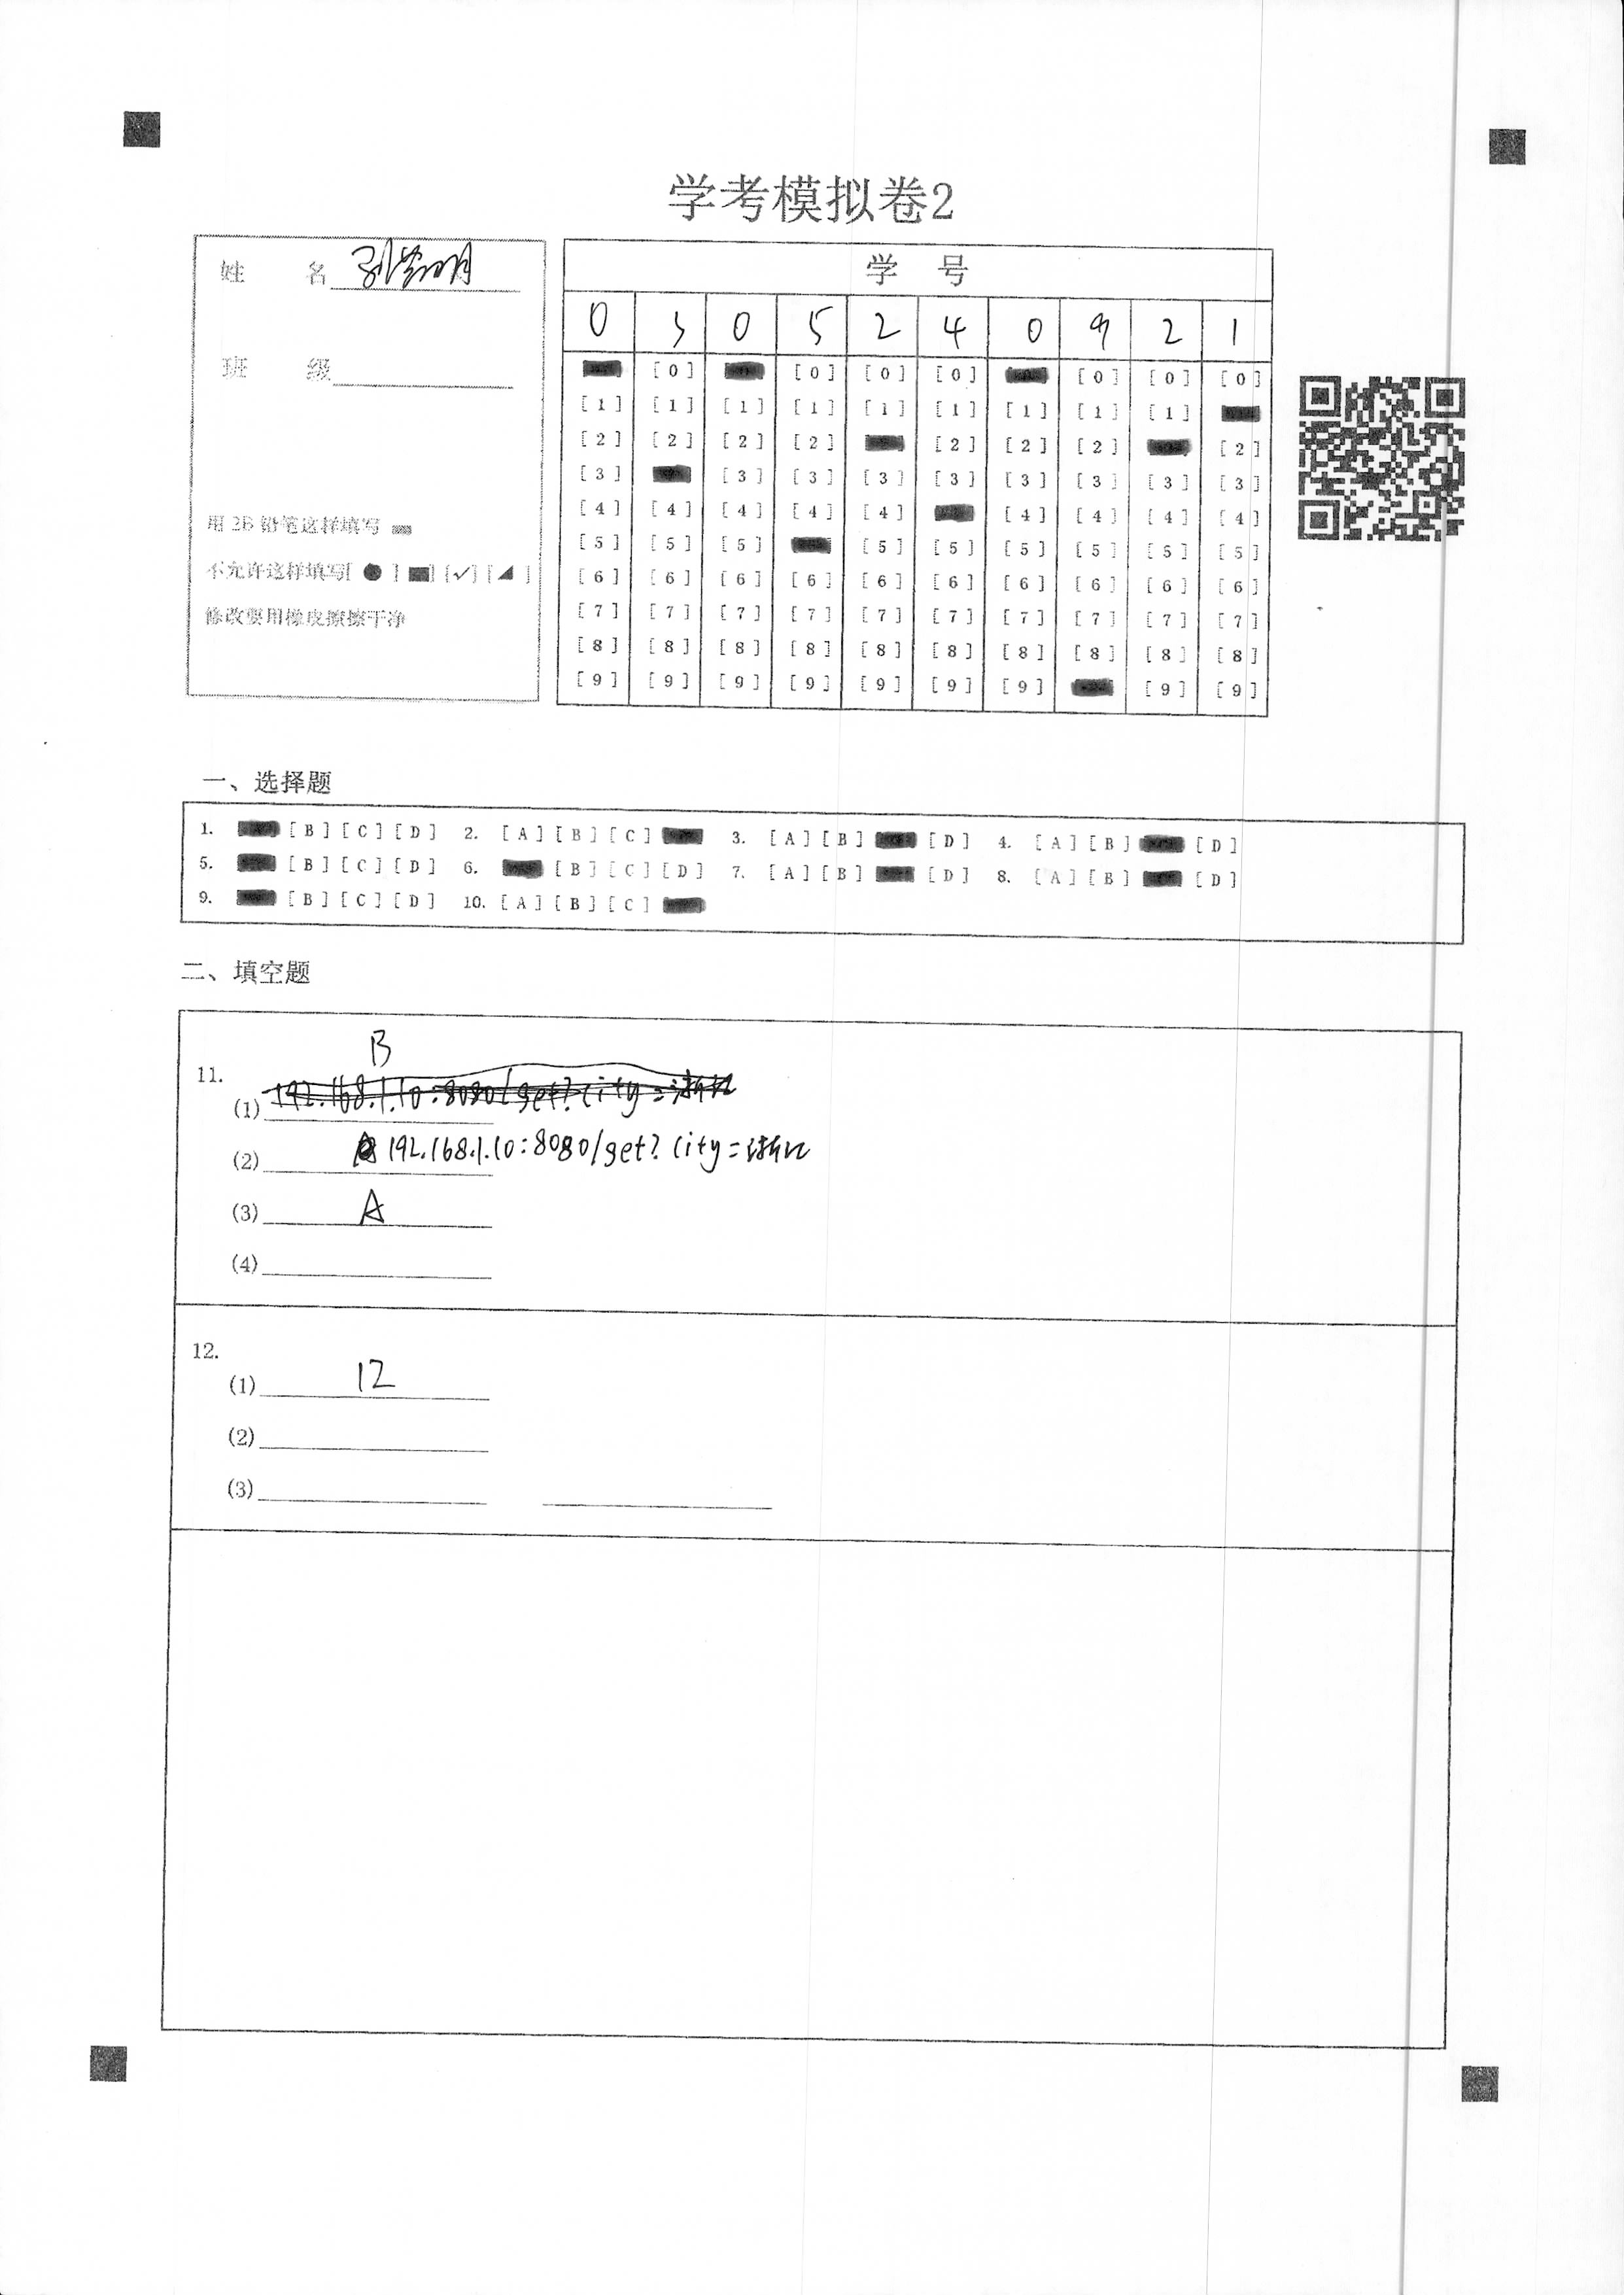 学考模拟卷2
姓 名
班 级
用 2B 铅笔这样填写
不允许这样填写[ ● ] [■] [✓] [◢ ]
修改要用橡皮擦擦干净
学 号
0 3 0 5 2 4 0 9 2 1
[0] [0] [0] [0] [0] [0] [0]
[1] [1] [1] [1] [1] [1] [1] [1] [1]
[2] [2] [2] [2] [2] [2] [2] [2]
[3] [3] [3] [3] [3] [3] [3] [3] [3]
[4] [4] [4] [4] [4] [4] [4] [4] [4]
[5] [5] [5] [5] [5] [5] [5] [5] [5]
[6] [6] [6] [6] [6] [6] [6] [6] [6] [6]
[7] [7] [7] [7] [7] [7] [7] [7] [7] [7]
[8] [8] [8] [8] [8] [8] [8] [8] [8] [8]
[9] [9] [9] [9] [9] [9] [9] [9] [9]
一、选择题
1. [B] [C] [D] 2. [A] [B] [C] 3. [A] [B] [D] 4. [A] [B] [D]
5. [B] [C] [D] 6. [B] [C] [D] 7. [A] [B] [D] 8. [A] [B] [D]
9. [B] [C] [D] 10. [A] [B] [C]
二、填空题
11.
B
(1) 192.168.1.10:8080/get?city=浙江
(2) 192.168.1.10:8080/get?city=浙江
(3) A
(4)
12.
(1) 12
(2)
(3)